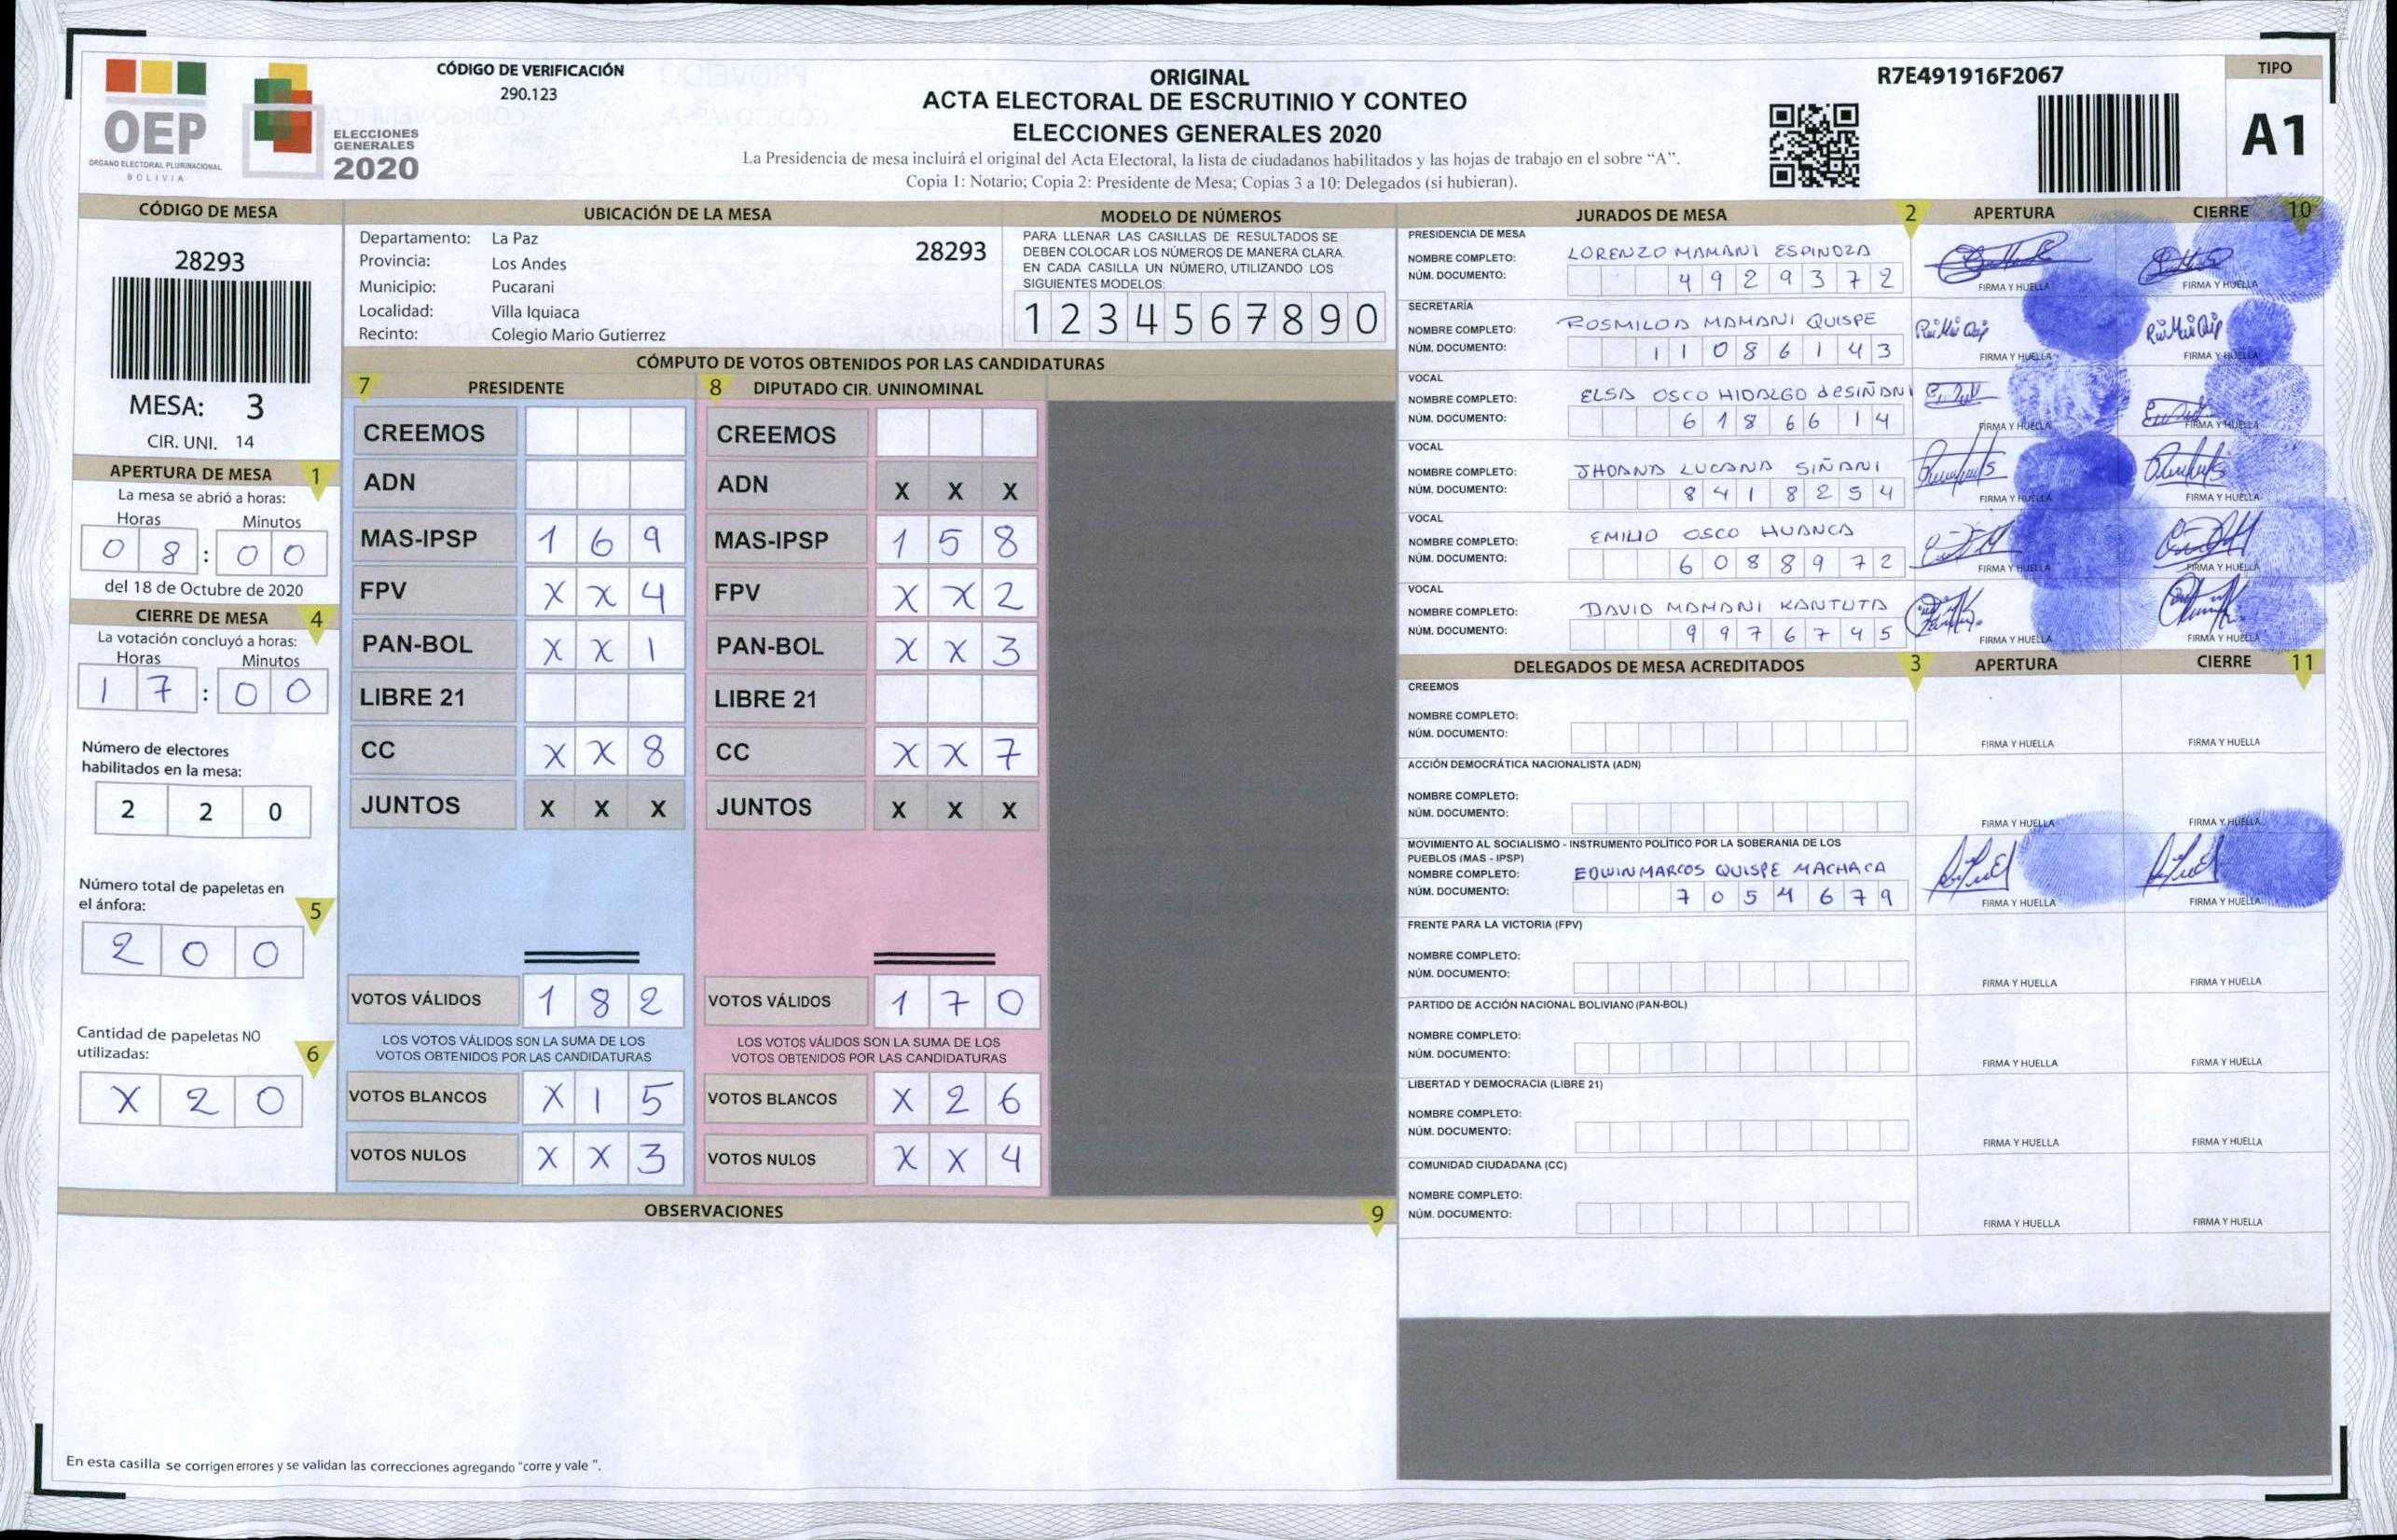 OEP
ORGANO ELECTORAL PLURINACIONAL
BOLIVIA
ELECCIONES
GENERALES
2020
CÓDIGO DE VERIFICACIÓN
290.123
ORIGINAL
ACTA ELECTORAL DE ESCRUTINIO Y CONTEO
ELECCIONES GENERALES 2020
La Presidencia de mesa incluirá el original del Acta Electoral, la lista de ciudadanos habilitados y las hojas de trabajo en el sobre “A”.
Copia 1: Notario; Copia 2: Presidente de Mesa; Copias 3 a 10: Delegados (si hubieran).
R7E491916F2067
TIPO
A1
CÓDIGO DE MESA
28293
MESA: 3
CIR. UNI. 14
APERTURA DE MESA 1
La mesa se abrió a horas:
Horas Minutos
0 8 : 0 0
del 18 de Octubre de 2020
CIERRE DE MESA 4
La votación concluyó a horas:
Horas Minutos
1 7 : 0 0
Número de electores
habilitados en la mesa:
2 2 0
Número total de papeletas en
el ánfora: 5
2 0 0
Cantidad de papeletas NO
utilizadas: 6
X 2 0
UBICACIÓN DE LA MESA
Departamento: La Paz 28293
Provincia: Los Andes
Municipio: Pucarani
Localidad: Villa Iquiaca
Recinto: Colegio Mario Gutierrez
MODELO DE NÚMEROS
PARA LLENAR LAS CASILLAS DE RESULTADOS SE
DEBEN COLOCAR LOS NÚMEROS DE MANERA CLARA.
EN CADA CASILLA UN NÚMERO, UTILIZANDO LOS
SIGUIENTES MODELOS:
1 2 3 4 5 6 7 8 9 0
CÓMPUTO DE VOTOS OBTENIDOS POR LAS CANDIDATURAS
7 PRESIDENTE 8 DIPUTADO CIR. UNINOMINAL
CREEMOS CREEMOS
ADN ADN X X X
MAS-IPSP 1 6 9 MAS-IPSP 1 5 8
FPV X X 4 FPV X X 2
PAN-BOL X X 1 PAN-BOL X X 3
LIBRE 21 LIBRE 21
CC X X 8 CC X X 7
JUNTOS X X X JUNTOS X X X
VOTOS VÁLIDOS 1 8 2 VOTOS VÁLIDOS 1 7 0
LOS VOTOS VÁLIDOS SON LA SUMA DE LOS LOS VOTOS VÁLIDOS SON LA SUMA DE LOS
VOTOS OBTENIDOS POR LAS CANDIDATURAS VOTOS OBTENIDOS POR LAS CANDIDATURAS
VOTOS BLANCOS X 1 5 VOTOS BLANCOS X 2 6
VOTOS NULOS X X 3 VOTOS NULOS X X 4
OBSERVACIONES 9
En esta casilla se corrigen errores y se validan las correcciones agregando “corre y vale ”.
JURADOS DE MESA 2 APERTURA CIERRE 10
PRESIDENCIA DE MESA
NOMBRE COMPLETO: LORENZO MAMANI ESPINOZA
NÚM. DOCUMENTO: 4 9 2 9 3 7 2
FIRMA Y HUELLA FIRMA Y HUELLA
SECRETARÍA
NOMBRE COMPLETO: ROSMILDA MAMANI QUISPE
NÚM. DOCUMENTO: 1 1 0 8 6 1 4 3
FIRMA Y HUELLA FIRMA Y HUELLA
VOCAL
NOMBRE COMPLETO: ELSA OSCO HIDALGO de SIÑANI
NÚM. DOCUMENTO: 6 1 8 6 6 1 4
FIRMA Y HUELLA FIRMA Y HUELLA
VOCAL
NOMBRE COMPLETO: JHOANA LUCANA SIÑANI
NÚM. DOCUMENTO: 8 4 1 8 2 5 4
FIRMA Y HUELLA FIRMA Y HUELLA
VOCAL
NOMBRE COMPLETO: EMILIO OSCO HUANCA
NÚM. DOCUMENTO: 6 0 8 8 9 7 2
FIRMA Y HUELLA FIRMA Y HUELLA
VOCAL
NOMBRE COMPLETO: DAVID MAMANI KANTUTA
NÚM. DOCUMENTO: 9 9 7 6 7 4 5
FIRMA Y HUELLA FIRMA Y HUELLA
DELEGADOS DE MESA ACREDITADOS 3 APERTURA CIERRE 11
CREEMOS
NOMBRE COMPLETO:
NÚM. DOCUMENTO:
FIRMA Y HUELLA FIRMA Y HUELLA
ACCIÓN DEMOCRÁTICA NACIONALISTA (ADN)
NOMBRE COMPLETO:
NÚM. DOCUMENTO:
FIRMA Y HUELLA FIRMA Y HUELLA
MOVIMIENTO AL SOCIALISMO - INSTRUMENTO POLÍTICO POR LA SOBERANIA DE LOS
PUEBLOS (MAS - IPSP)
NOMBRE COMPLETO: EDWIN MARCOS QUISPE MACHACA
NÚM. DOCUMENTO: 7 0 5 4 6 7 9
FIRMA Y HUELLA FIRMA Y HUELLA
FRENTE PARA LA VICTORIA (FPV)
NOMBRE COMPLETO:
NÚM. DOCUMENTO:
FIRMA Y HUELLA FIRMA Y HUELLA
PARTIDO DE ACCIÓN NACIONAL BOLIVIANO (PAN-BOL)
NOMBRE COMPLETO:
NÚM. DOCUMENTO:
FIRMA Y HUELLA FIRMA Y HUELLA
LIBERTAD Y DEMOCRACIA (LIBRE 21)
NOMBRE COMPLETO:
NÚM. DOCUMENTO:
FIRMA Y HUELLA FIRMA Y HUELLA
COMUNIDAD CIUDADANA (CC)
NOMBRE COMPLETO:
NÚM. DOCUMENTO:
FIRMA Y HUELLA FIRMA Y HUELLA